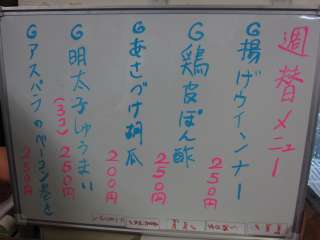 週替メニュー
G揚げウインナー
250
G鶏皮ぽん酢
250
Gあさづけ胡瓜
200円
G明太子しゅうまい
(5コ) 250円
Gアスパラのベーコン巻き
250円